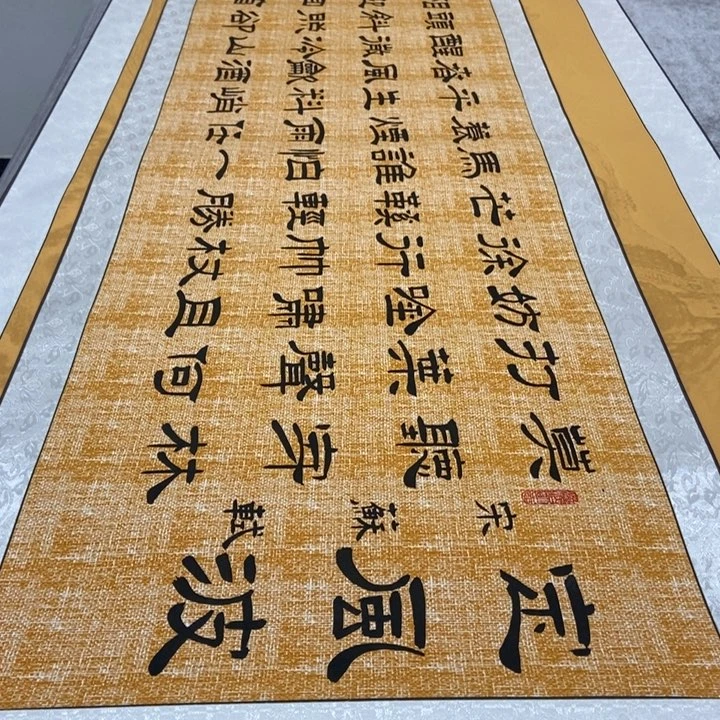 定風波
宋蘇軾
莫聽穿林
打葉聲何
妨吟嘯且
徐行竹杖
芒鞋輕勝
馬誰怕一
蓑煙雨任
平生料峭
春風吹酒
醒微冷山
頭斜照卻
相迎回首